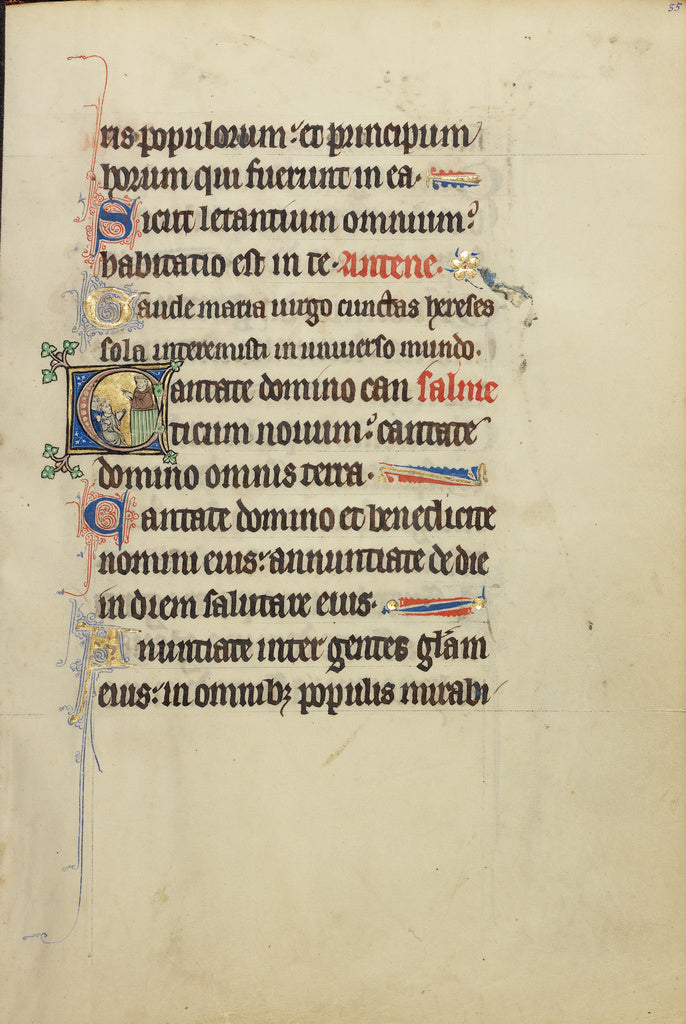 55
ris populorum: et principum
horum qui fuerunt in ea.
Sicut letantium omnium:
habitatio est in te. Antene.
Gaude maria uirgo cunctas hereses
sola interemisti in uniuerso mundo.
Cantate domino can salme
ticum nouum: cantate
domino omnis terra.
Cantate domino et benedicite
nomini eius: annuntiate de die
in diem salutare eius.
Anuntiate inter gentes glãm
eius: in omnibꝫ populis mirabi